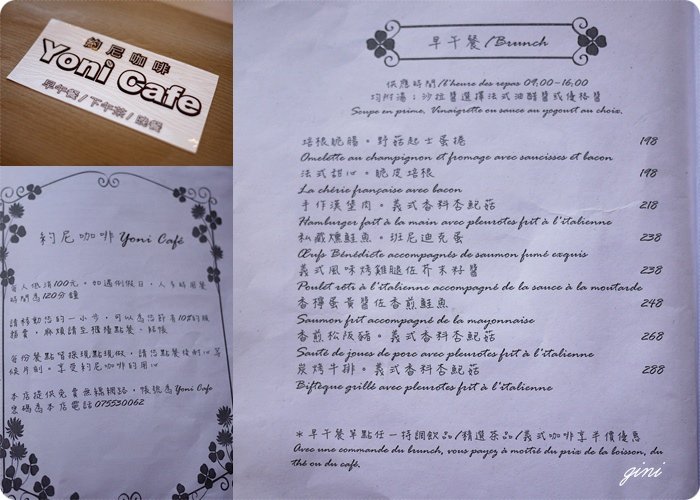 約尼咖啡
Yoni Cafe
早午餐/下午茶/晚餐
約尼咖啡 Yoni Café
每人低消100元。如遇例假日,人多時用餐
時間為120分鐘
請移動您的一小步,可以為您節省10%的服
務費,麻煩請至櫃檯點餐、結帳
每份餐點皆採現點現做,請您點餐後耐心等
候片刻。享受約尼咖啡的用心
本店提供免費無線網路,帳號為Yoni Cafe
密碼為本店電話075530062
早午餐/Brunch
供應時間/l'heure des repas 09:00-16:00
均附湯;沙拉醬選擇法式油醋醬或優格醬
Soupe en prime, Vinaigrette ou sauce au yogourt au choix.
培根脆腸。野菇起士蛋捲 198
Omelette au champignon et fromage avec saucisses et bacon
法式甜心。脆皮培根 198
La chérie française avec bacon
手作漢堡肉。義式香料杏鮑菇 218
Hamburger fait à la main avec pleurotes frit à l'italienne
私藏燻鮭魚。班尼迪克蛋 238
Œufs Bénédicte accompagnés de saumon fumé exquis
義式風味烤雞腿佐芥末籽醬 238
Poulet rôti à l'italienne accompagné de la sauce à la moutarde
香檸蛋黃醬佐香煎鮭魚 248
Saumon frit accompagné de la mayonnaise
香煎松阪豬。義式香料杏鮑菇 268
Sauté de joues de porc avec pleurotes frit à l'italienne
炭烤牛排。義式香料杏鮑菇 288
Biftèque grillé avec pleurotes frit à l'italienne
*早午餐單點任一特調飲品/精選茶品/義式咖啡享半價優惠
Avec une commande du brunch, vous payez à moitié du prix de la boisson, du
thé ou du café.
gini